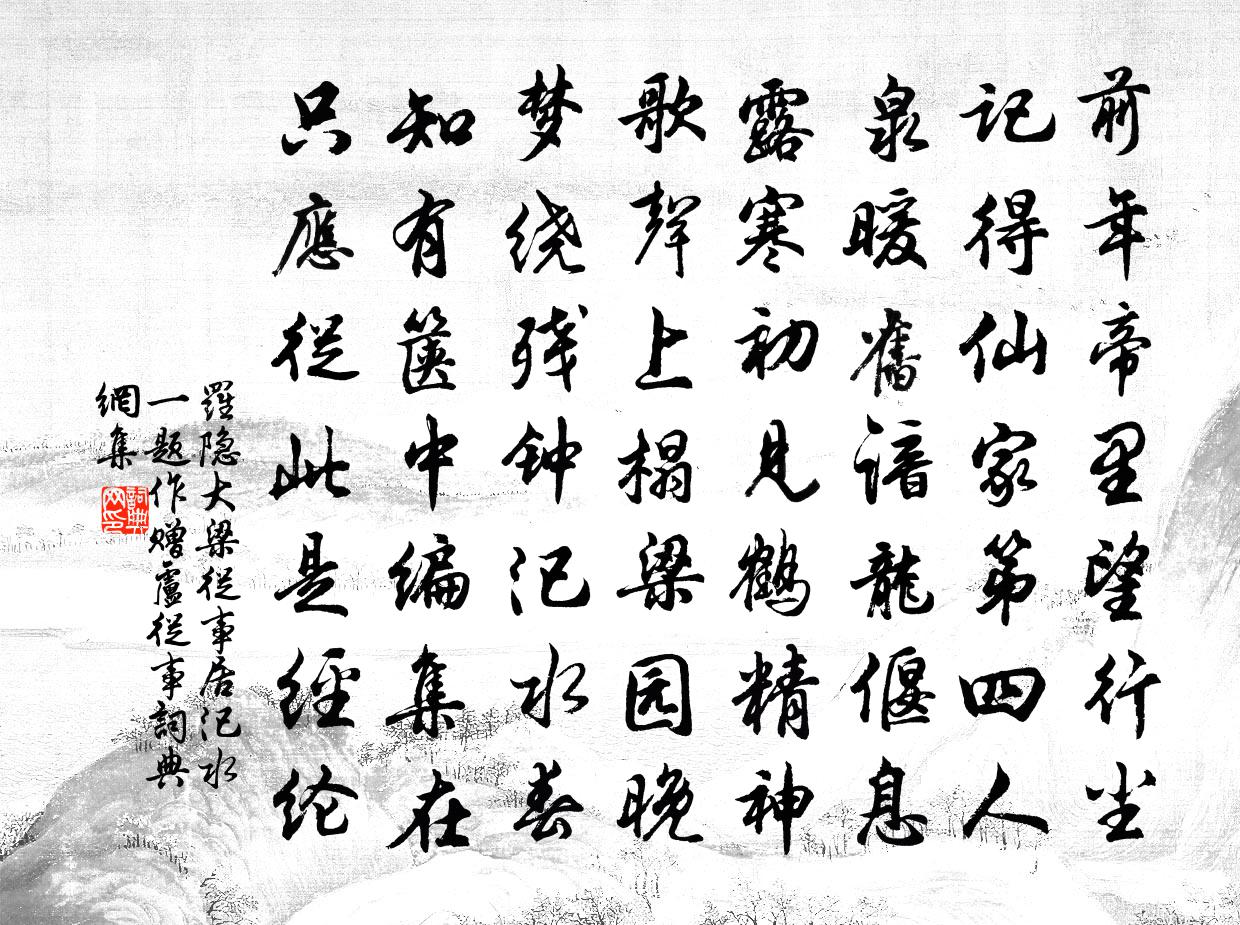 前年帝里望行尘
记得仙家第四人
泉暖舊谙龍偃息
露寒初见鹤精神
歌聲上榻梁园晚
梦绕残钟汜水春
知有箧中编集在
只應從此是經纶
羅隐大梁從事居汜水
一题作赠盧從事詞典
網集
詞典网印